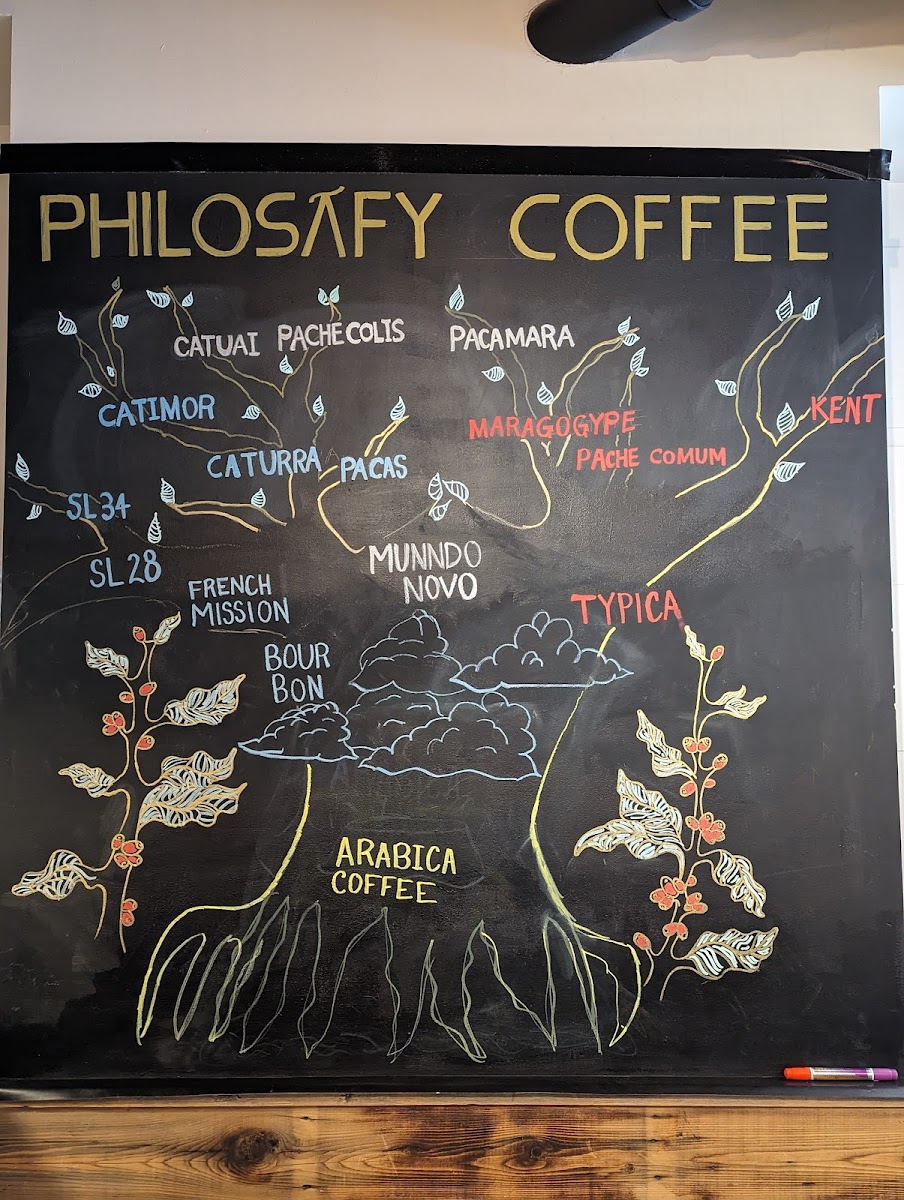 PHILOSÁFY COFFEE
CATUAI PACHE COLIS PACAMARA
CATIMOR
MARAGOGYPE
KENT
CATURRA PACAS
PACHE COMUM
SL34
SL28
MUNNDO
NOVO
FRENCH
MISSION
TYPICA
BOUR
BON
ARABICA
COFFEE